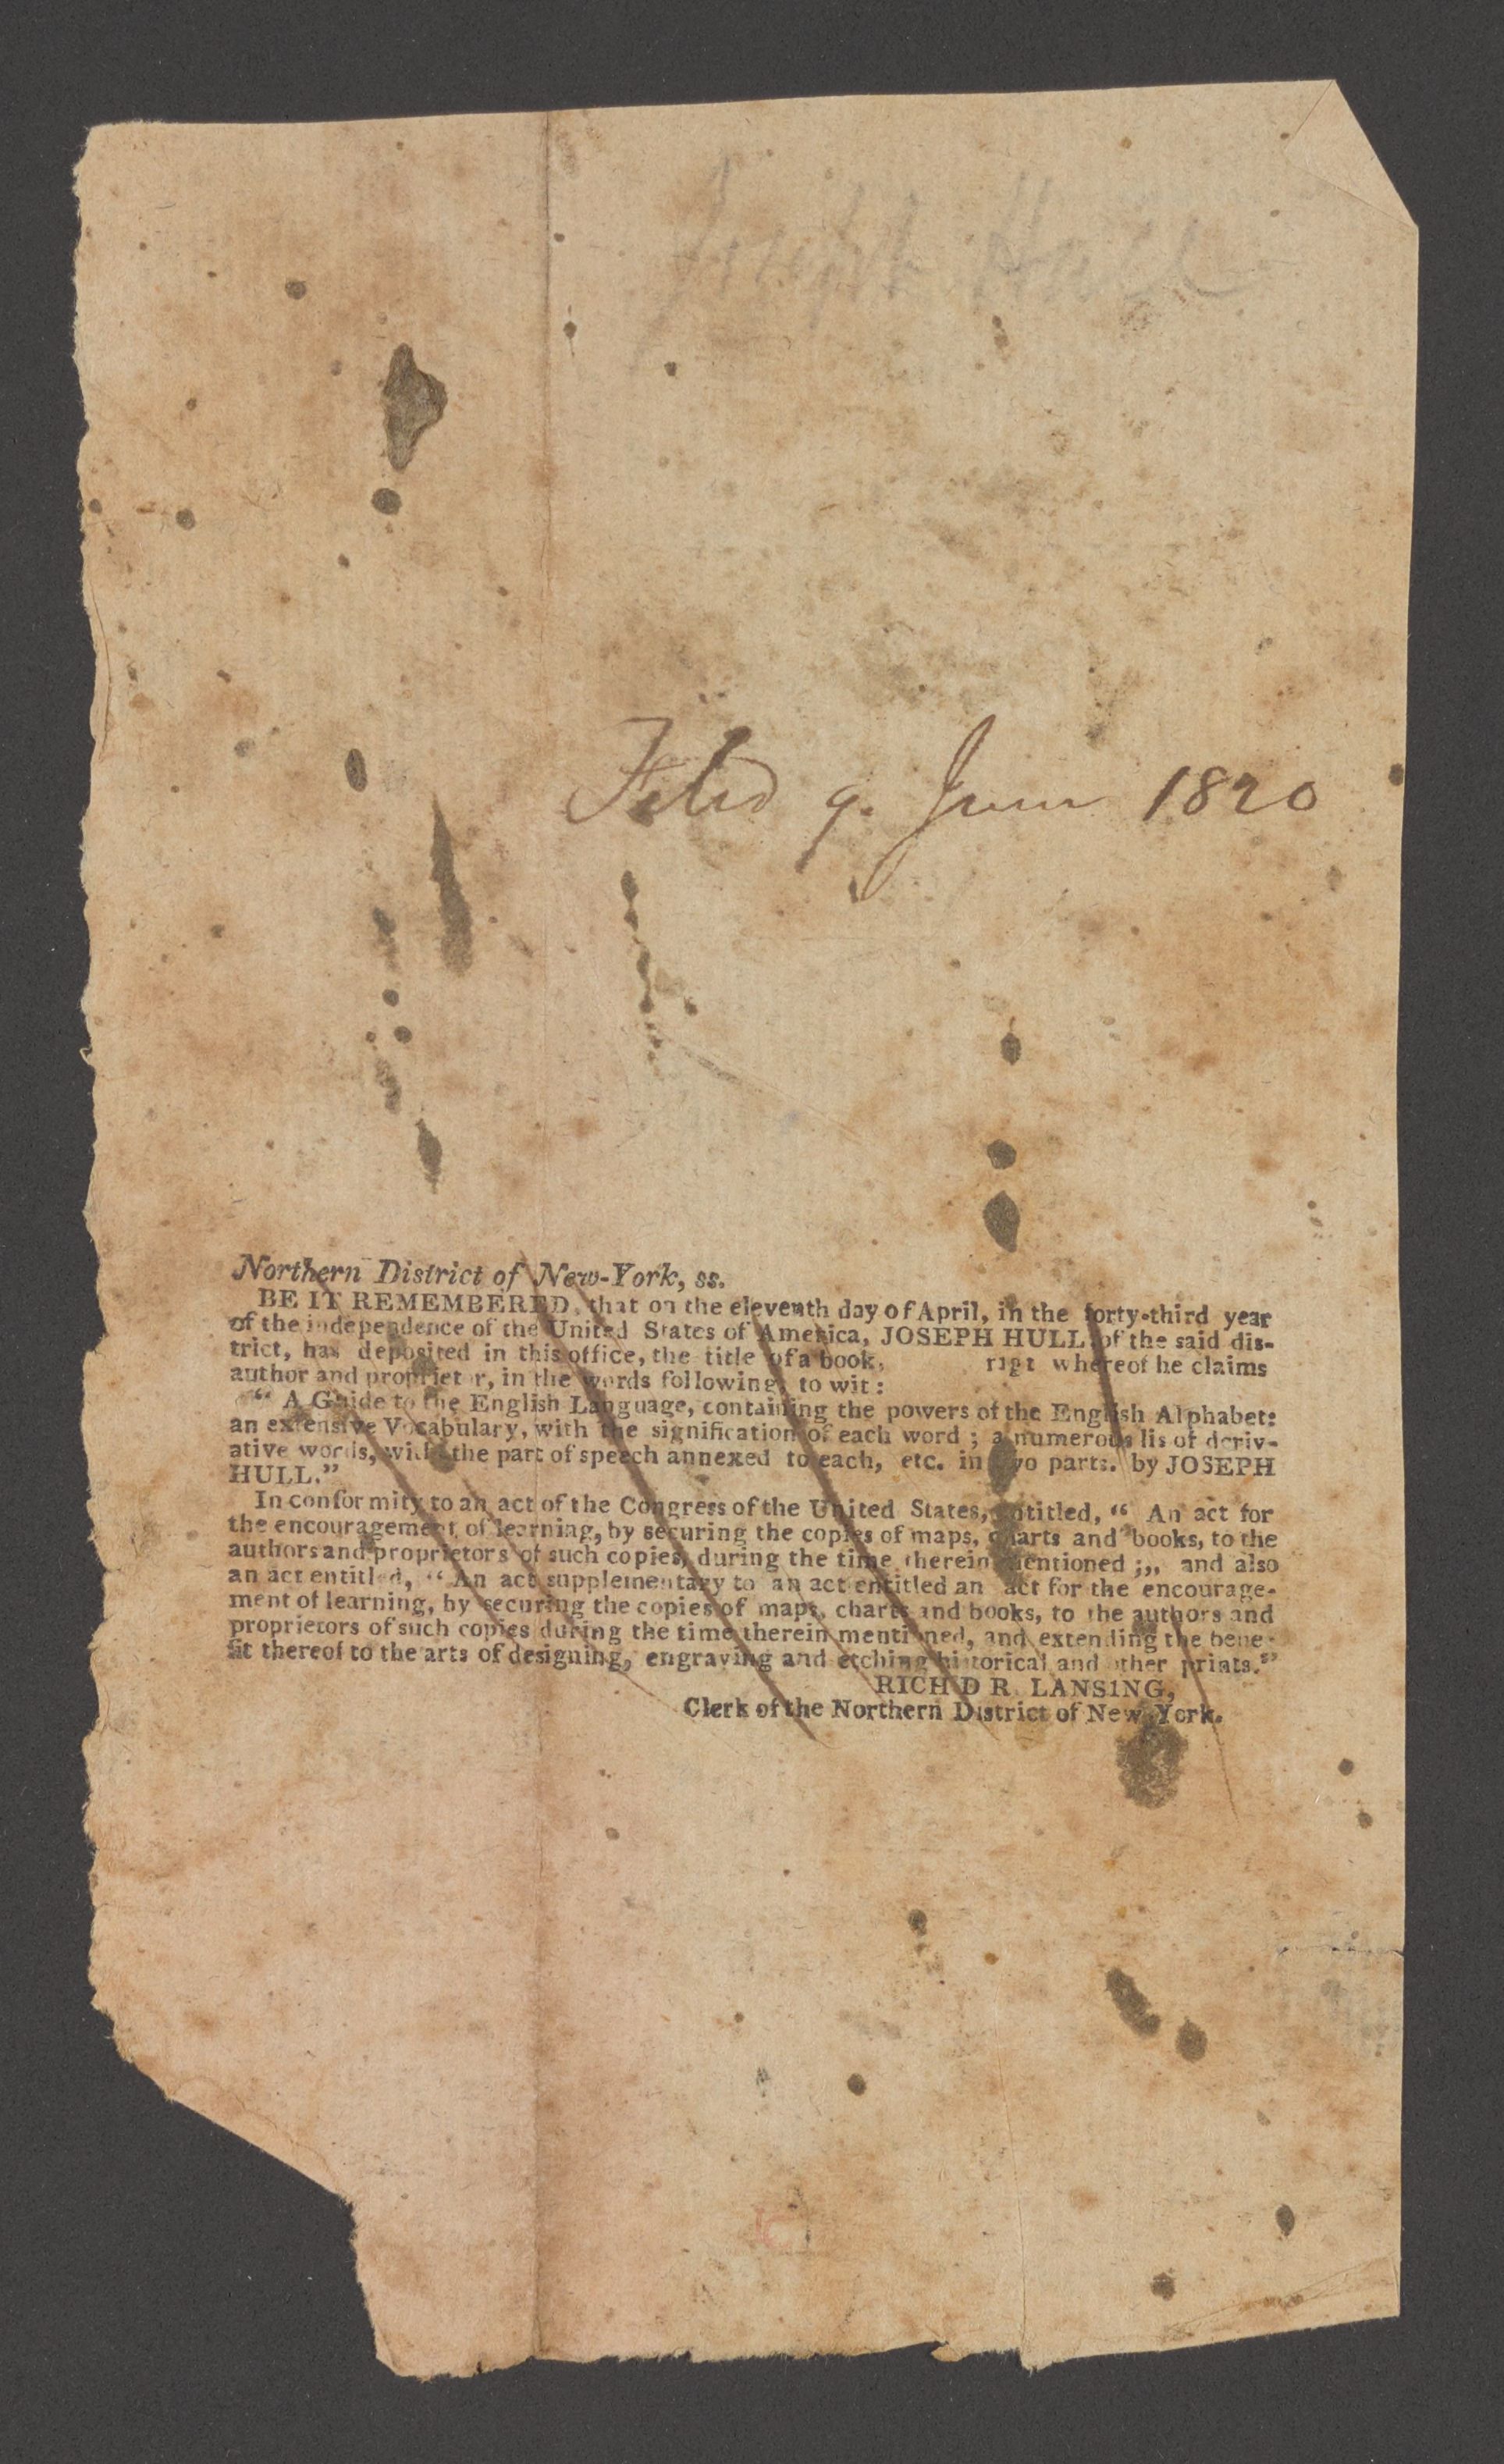 Joseph Hull
Filed 9. June 1820
Northern District of New-York, ss.
BE IT REMEMBERED, that on the eleventh day of April, in the forty-third year
of the independence of the United States of America, JOSEPH HULL of the said dis-
trict, has deposited in this office, the title of a book, rigt whereof he claims
author and proprietor, in the words following to wit:
“ A Guide to the English Language, containing the powers of the English Alphabet:
an extensive Vocabulary, with the signification of each word ; a numerous lis of deriv-
ative words, with the part of speech annexed to each, etc. in two parts. by JOSEPH
HULL.”
In conformity to an act of the Congress of the United States, entitled, “ An act for
the encouragement of learning, by securing the copies of maps, charts and books, to the
authors and proprietors of such copies, during the time therein mentioned ;,, and also
an act entitled, “ An act supplementary to an act entitled an act for the encourage-
ment of learning, by securing the copies of maps, charts and books, to the authors and
proprietors of such copies during the time therein mentioned, and extending the bene-
fit thereof to the arts of designing, engraving and etching historical and other prints.”
RICH'D R. LANS1NG,
Clerk of the Northern District of New-York.